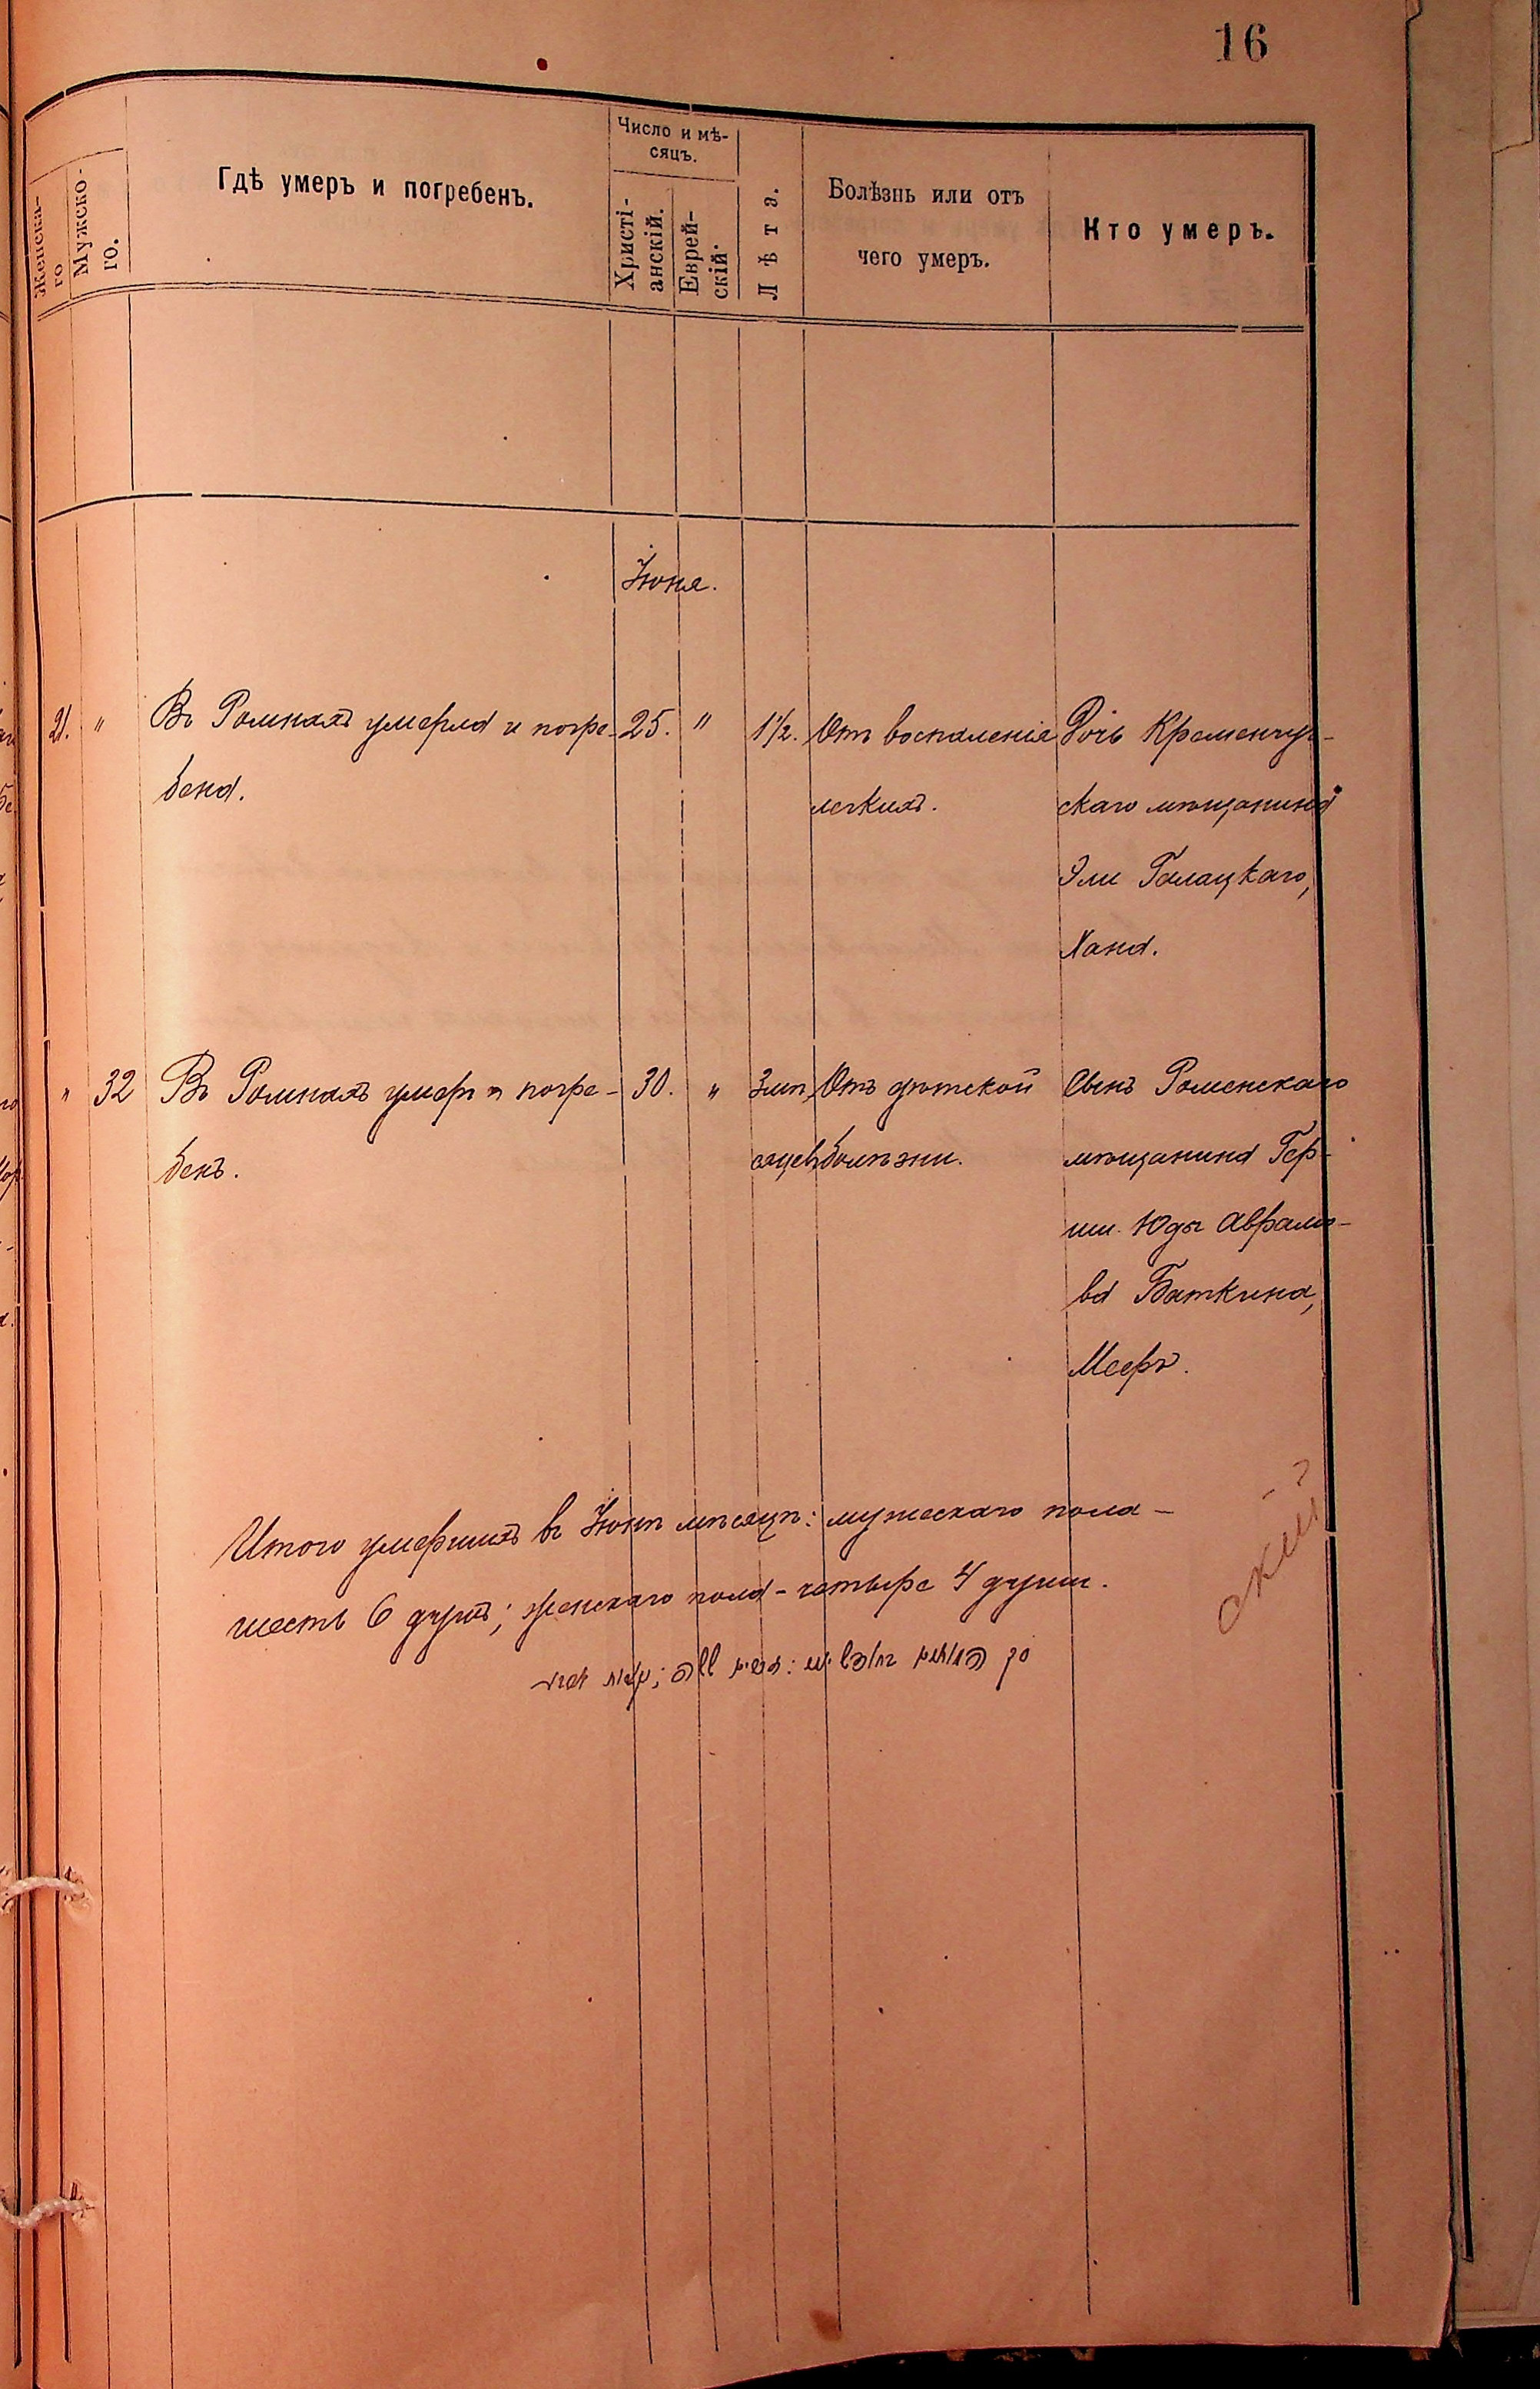 16
Женска-
го
Мужско-
го.
Гдѣ умеръ и погребенъ.
Число и мѣ-
сяцъ.
Христі-
анскій.
Еврей-
скій.
Лѣта.
Болѣзнь или отъ
чего умеръ.
Кто умеръ.
Іюня.
21. " Въ Ромнахъ умерла и погре- 25. " 1½. Отъ воспаленія Дочь Кременчуг-
бена. легкихъ. скаго мѣщанина
Эли Галацкаго,
Хана.
" 32 Въ Ромнахъ умеръ и погре- 30. " 3 мѣ Отъ дѣтской Сынъ Роменскаго
бенъ. сяцевъ болѣзни. мѣщанина Гер-
ши Юды Аврамо-
ва Баткина,
Мееръ.
Итого умершихъ въ Іюнѣ мѣсяцѣ: мужескаго пола -
шесть 6 душъ; женскаго пола - четыре 4 души.